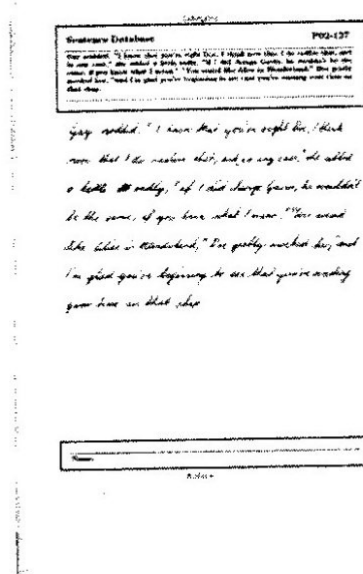 Sentence Database P02-127
Gay nodded. "I know that you're right Dee. I think now that I do realise that, and
in any case," she added a little sadly, "if I did change Gavin, he wouldn't be the
same, if you know what I mean." "You sound like Alice in Wonderland," Dee gently
mocked her, "and I'm glad you're beginning to see that you're wasting your time on
that chap.
Gay nodded. "I know that you're right Dee, I think
now that I do realise that, and in any case," she added
a little sadly, "if I did change Gavin, he wouldn't
be the same, if you know what I mean." "You sound
like Alice in Wonderland," Dee gently mocked her, "and
I'm glad you're beginning to see that you're wasting
your time on that chap
Name: